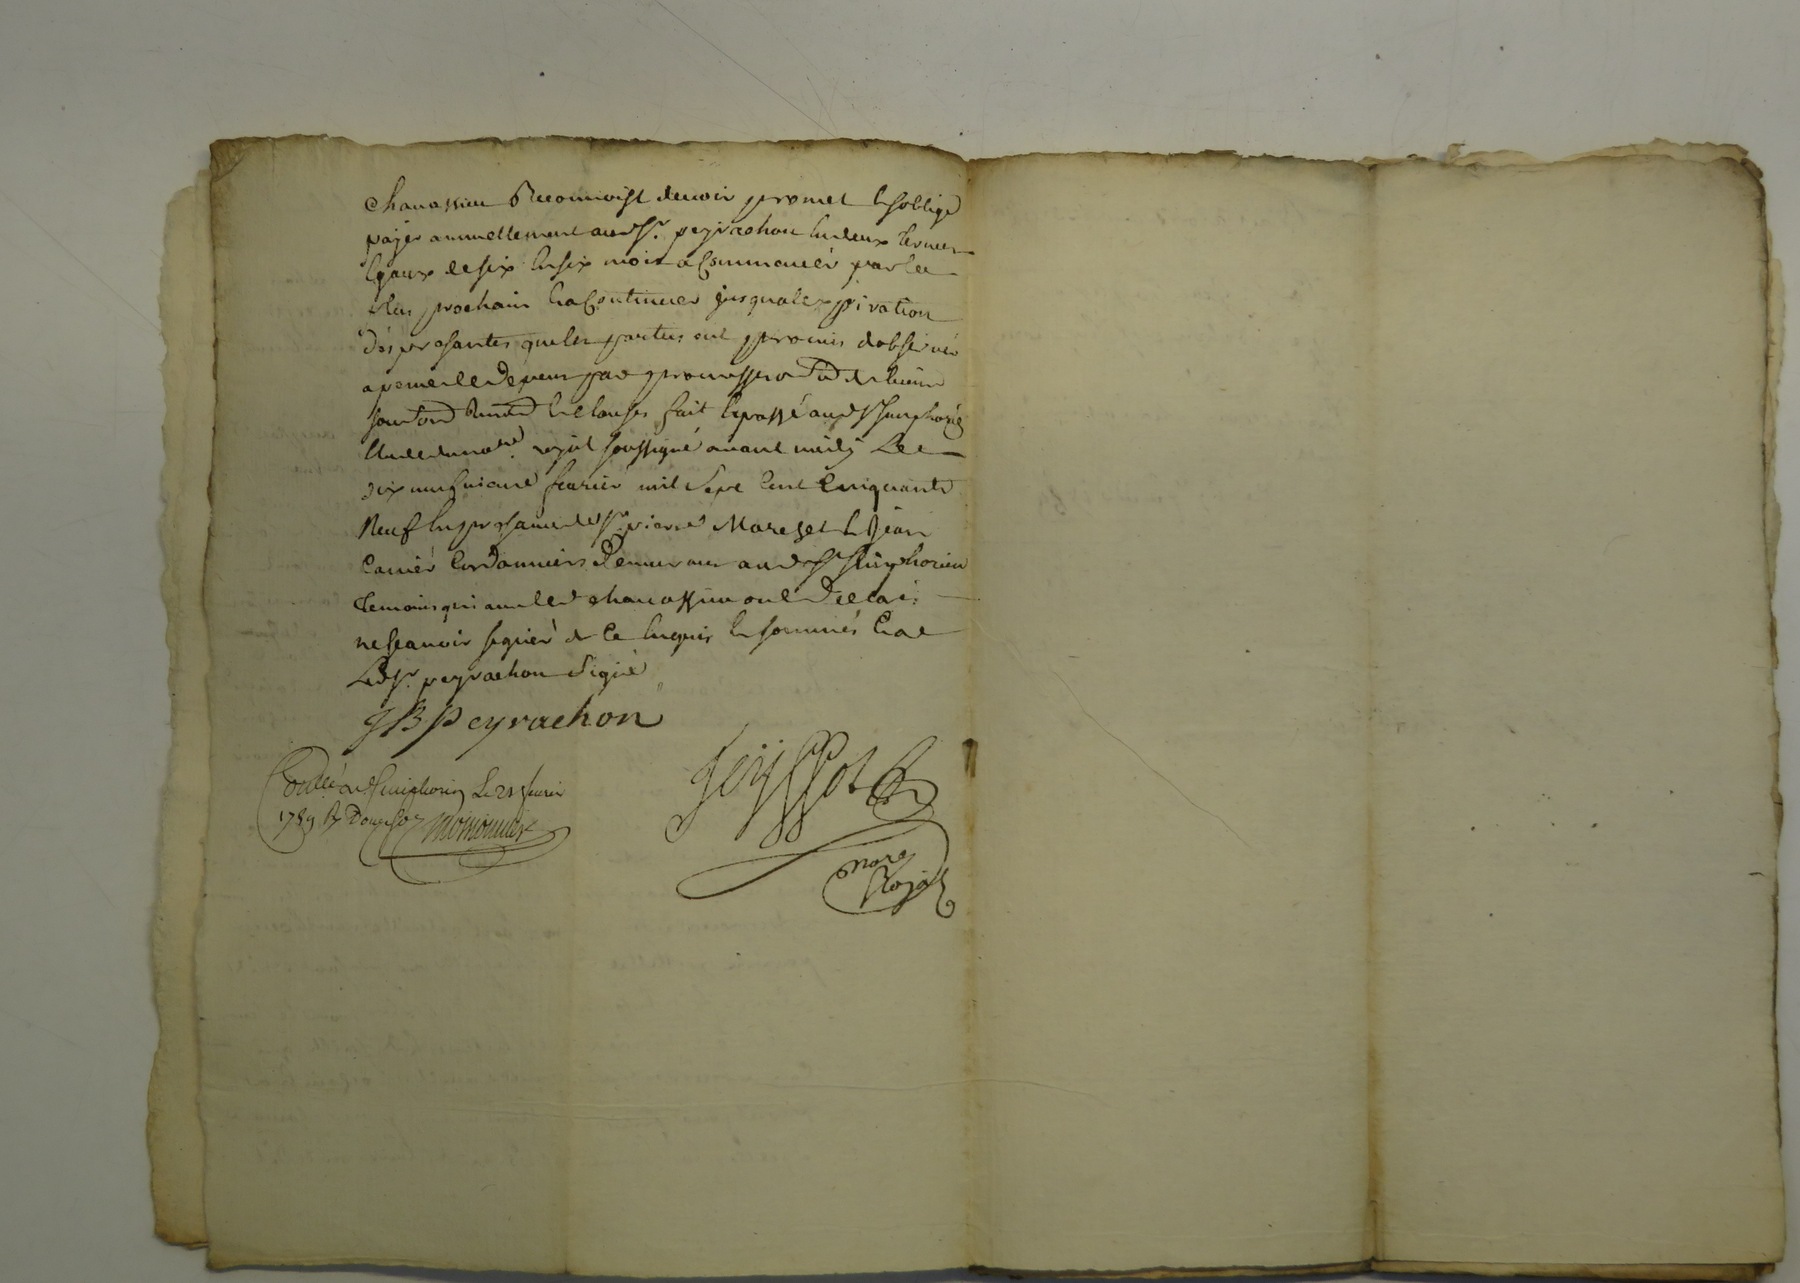 Chanassieu Reconnoist devoir promet & soblige
payer annuellement aud sr. peyrachon en deux termes
Egaux de six en six mois a Commancér par le
plus prochain Et a Continuer jusqualexppiration
des presantes que les parties ont promis dobservér
a peine de depens par
clauses fait & passé aud st simphorien
Etude du nore. royal soussigné avant midy Le
dix neufvieme fevrier mil Sept Cent Cinquante
Neuf En presance de sr. pierre Marezet & Jean
Carrier Cordonniers demeurans aud st simphorien
temoins qui avec led chanassieu ont declaré
ne scavoir signér de Ce Enquis & sommés Et a
Led sr. peyrachon Signé
J B Peyrachon
Controllé a st simphorien Le 21 fevrier
1759 R Douze sols
nore
Royal